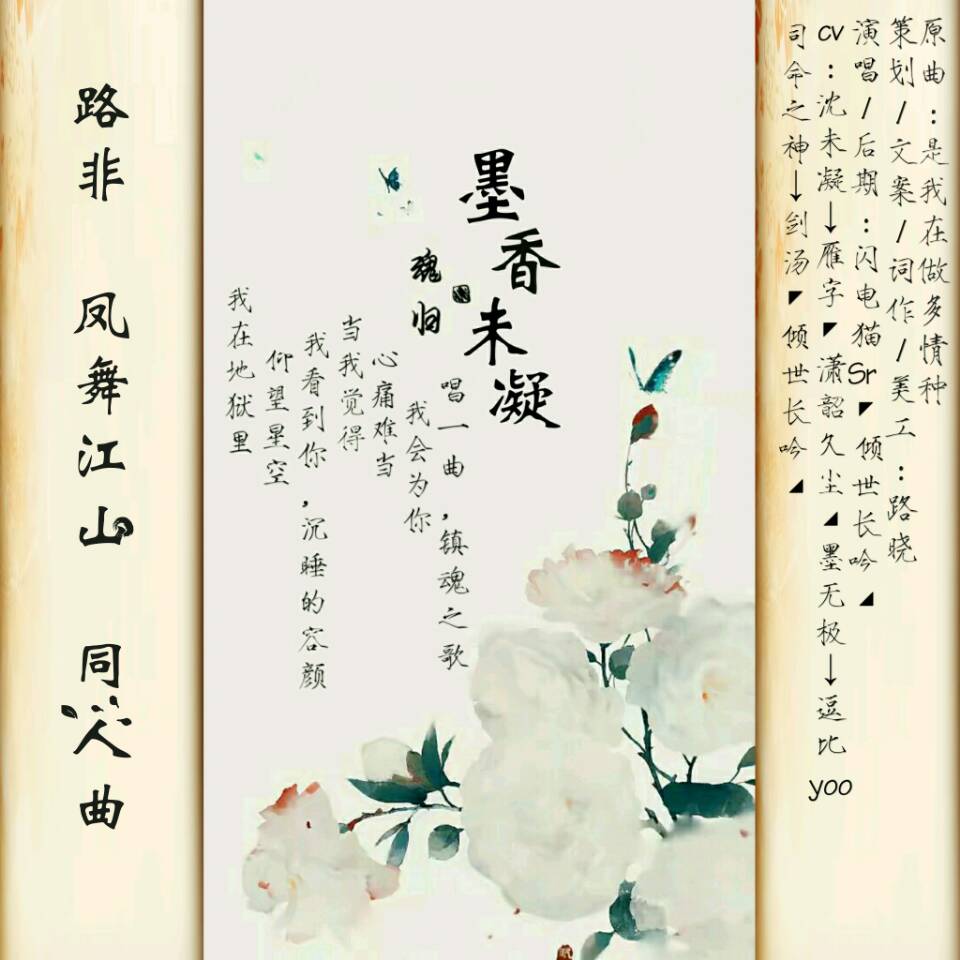 路非 凤舞江山 同人曲
墨香未凝
魂归
我在地狱里
仰望星空
我看到你,沉睡的容颜
当我觉得
心痛难当
我会为你
唱一曲,镇魂之歌
原曲:是我在做多情种
策划/文案/词作/美工:路晓
演唱/后期:闪电猫Sr◤倾世长吟◢
cv:沈未凝↓雁字◤潇韶久尘◢墨无极↓逗比yoo
司命之神↓剑汤◤倾世长吟◢